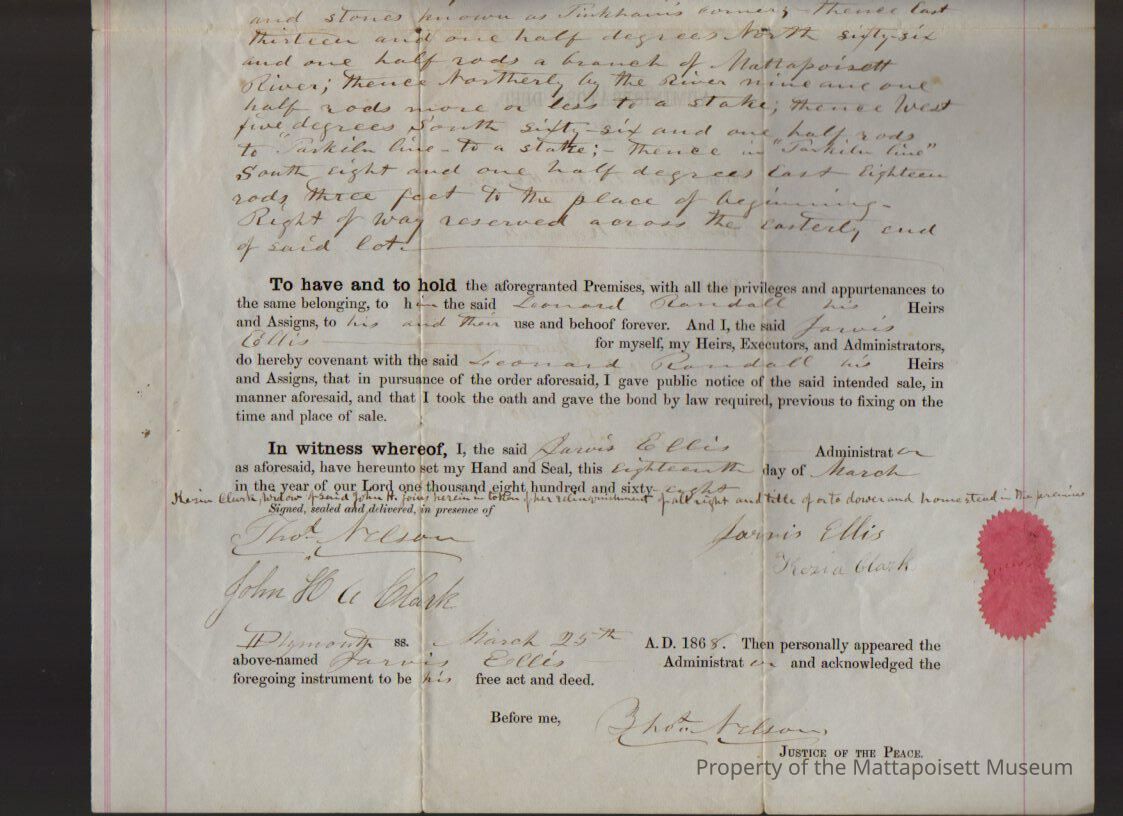 and stones known as Tinkham's corner; thence East
thirteen and one half degrees North sixty-six
and one half rods a branch of Mattapoisett
River; thence Northerly by the River nine and one
half rods more or less to a stake; thence West
five degrees South sixty-six and one half rods
to "Tarkiln line - to a stake; - thence in "Tarkiln line"
South eight and one half degrees East Eighteen
rods three feet to the place of beginning -
Right of way reserved across the easterly end
of said lot.
To have and to hold the aforegranted Premises, with all the privileges and appurtenances to
the same belonging, to him the said Leonard Randall his Heirs
and Assigns, to his and their use and behoof forever. And I, the said Jarvis
Ellis for myself, my Heirs, Executors, and Administrators,
do hereby covenant with the said Leonard Randall his Heirs
and Assigns, that in pursuance of the order aforesaid, I gave public notice of the said intended sale, in
manner aforesaid, and that I took the oath and gave the bond by law required, previous to fixing on the
time and place of sale.
In witness whereof, I, the said Jarvis Ellis Administrator
as aforesaid, have hereunto set my Hand and Seal, this eighteenth day of March
in the year of our Lord one thousand eight hundred and sixty-eight
Kezia Clark, widow of said John H. joins herein in token of her relinquishment of all right and title of or to dower and homestead in the premises
Signed, sealed and delivered, in presence of
Thos. Nelson Jarvis Ellis
Kezia Clark
John H Clark
Plymouth ss. March 25th A.D. 1868. Then personally appeared the
above-named Jarvis Ellis Administrator and acknowledged the
foregoing instrument to be his free act and deed.
Before me, Thos. Nelson
JUSTICE OF THE PEACE.
Property of the Mattapoisett Museum